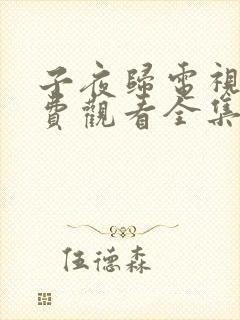 子夜歸電視
費觀看全集
伍德森